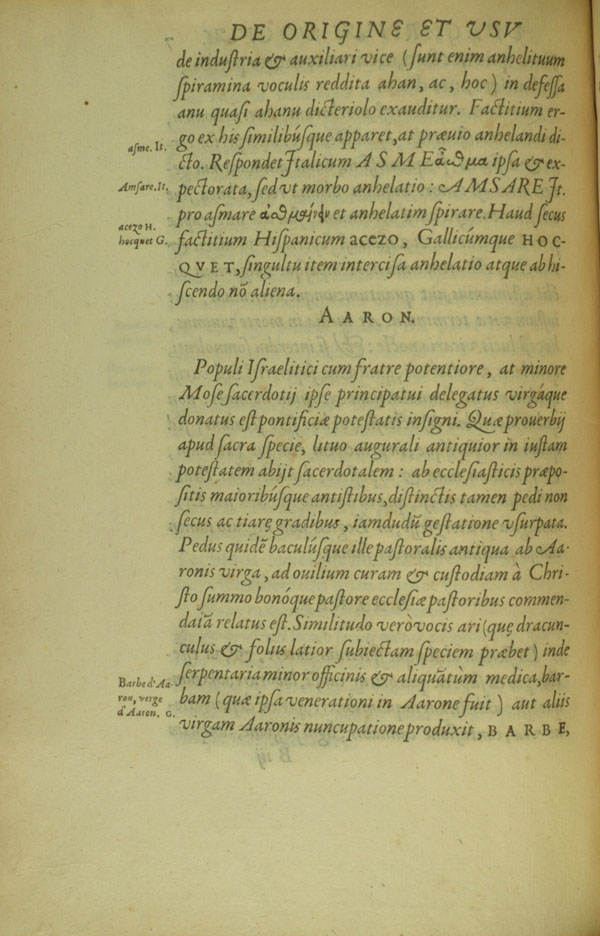 DE ORIGINE ET VSV
de industria & auxiliari vice (sunt enim anhelituum
spiramina voculis reddita ahan, ac, hoc) in defessa
anu quasi ahanu dicteriolo exauditur. Factitium er-
go ex his similibúsque apparet, at præuio anhelandi di-
asme. It.
cto. Respondet Italicum ASME ἆσθμα ipsa & ex-
Amsare. It.
pectorata, sed vt morbo anhelatio: AMSARE It.
pro asmare ἀσθμαίνειν et anhelatim spirare. Haud secus
acezo H.
hocquet G.
factitium Hispanicum acezo, Gallicúmque HOC-
QVET, singultu item intercisa anhelatio atque ab hi-
scendo nõ aliena.
AARON.
Populi Israelitici cum fratre potentiore, at minore
Mose sacerdotij ipse principatui delegatus virgáque
donatus est pontificiæ potestatis insigni. Quæ prouerbij
apud sacra specie, lituo augurali antiquior in iustam
potestatem abijt sacerdotalem: ab ecclesiasticis præpo-
sitis maioribúsque antistibus, distinctis tamen pedi non
secus ac tiarę gradibus, iamdudũ gestatione vsurpata.
Pedus quidẽ baculúsque ille pastoralis antiqua ab Aa-
ronis virga, ad ouilium curam & custodiam à Chri-
sto summo bonóque pastore ecclesiæ pastoribus commen-
datã relatus est. Similitudo verò vocis ari (quę dracun-
culus & foliis latior subiectam speciem præbet) inde
Barbe d'Aa-
ron, verge
d'Aaron. G.
serpentaria minor officinis & aliquãtùm medica, bar-
bam (quæ ipsa venerationi in Aarone fuit) aut aliis
virgam Aaronis nuncupatione produxit, BARBE,
B iij